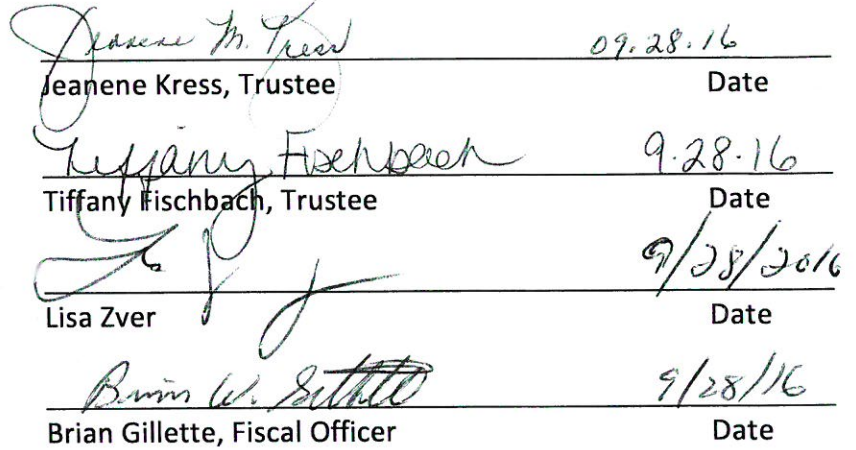 Jeanene M. Kress 09.28.16
Jeanene Kress, Trustee Date
Tiffany Fischbach 9.28.16
Tiffany Fischbach, Trustee Date
9/28/2016
Lisa Zver Date
Brian W. Gillette 9/28/16
Brian Gillette, Fiscal Officer Date